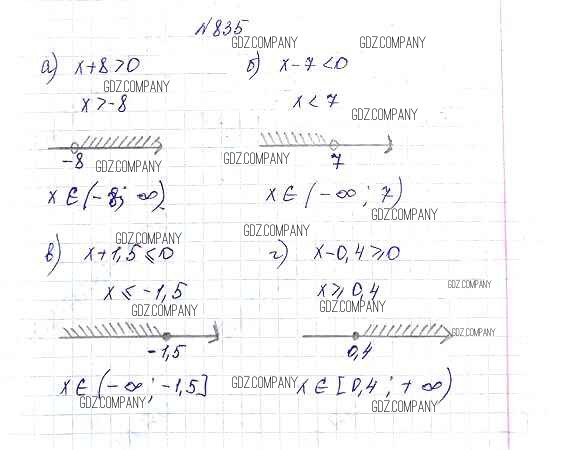 №835
GDZ.COMPANY GDZ.COMPANY
а) x+8>0 б) x-7<0
GDZ.COMPANY
x>-8 x<7
GDZ.COMPANY
-8 7
GDZ.COMPANY GDZ.COMPANY
x∈(-8; ∞) x∈(-∞; 7)
GDZ.COMPANY
GDZ.COMPANY GDZ.COMPANY
в) x+1,5≤0 г) x-0,4≥0
x≤-1,5 x≥0,4
GDZ.COMPANY
GDZ.COMPANY GDZ.COMPANY
GDZ.COMPANY
-1,5 0,4
x∈(-∞; -1,5] GDZ.COMPANY x∈[0,4; +∞)
GDZ.COMPANY GDZ.COMPANY